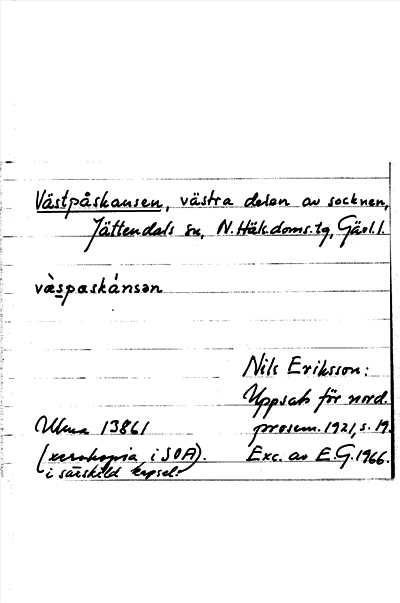 Västpåskansen, västra delen av socknen,
Jättendals sn, N. Häls. doms. tg, Gävl. l.
vàspaskánsən
Nils Eriksson:
Uppsats för nord.
prosem. 1921, s. 19.
Ulma 13861
(xerokopia i SOA).
i särskild kapsel.
Exc. av E.G. 1966.